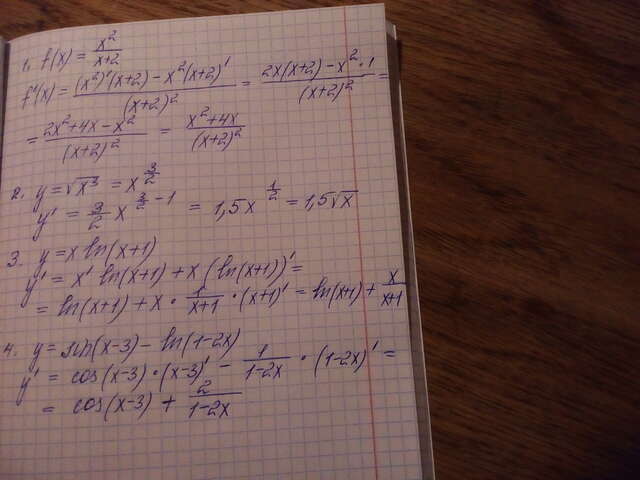 1. f(x) = x²/(x+2)
f'(x) = ((x²)'(x+2) - x²(x+2)')/(x+2)² = (2x(x+2) - x²·1)/(x+2)² =
= (2x²+4x-x²)/(x+2)² = (x²+4x)/(x+2)²
2. y = √x³ = x^(3/2)
y' = 3/2 x^(3/2 - 1) = 1,5x^(1/2) = 1,5√x
3. y = x ln(x+1)
y' = x' ln(x+1) + x (ln(x+1))' =
= ln(x+1) + x · 1/(x+1) · (x+1)' = ln(x+1) + x/(x+1)
4. y = sin(x-3) - ln(1-2x)
y' = cos(x-3) · (x-3)' - 1/(1-2x) · (1-2x)' =
= cos(x-3) + 2/(1-2x)